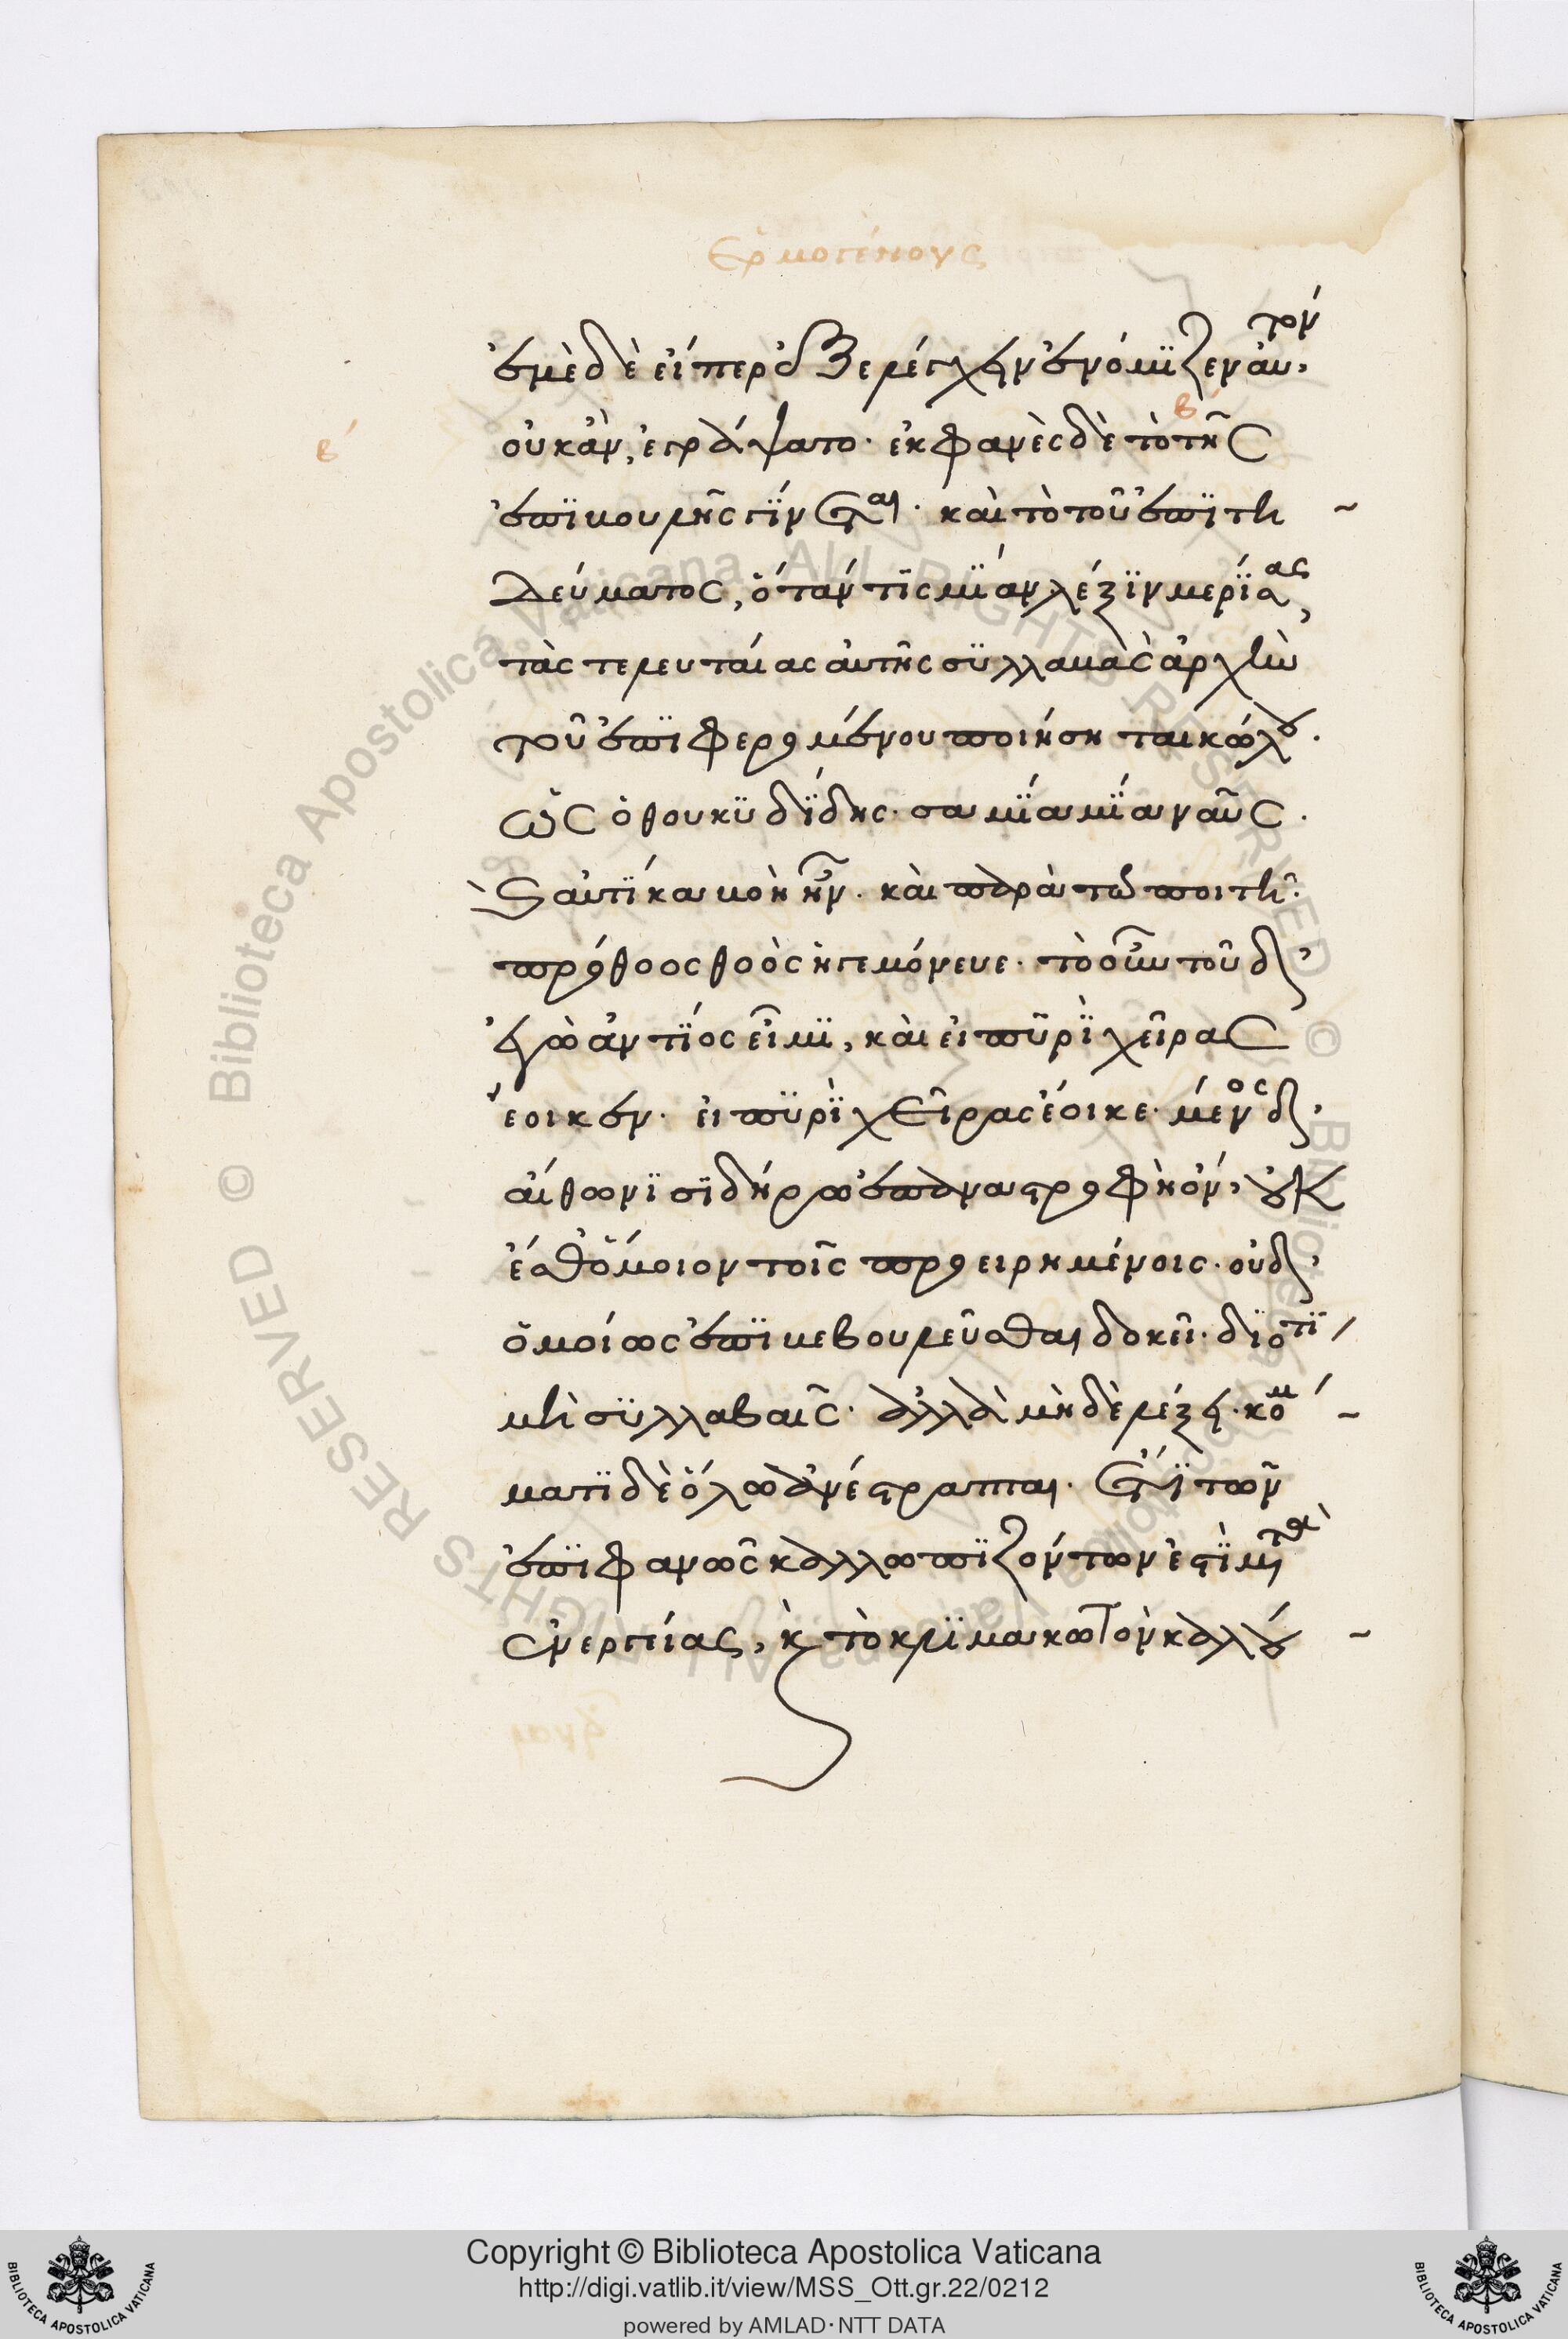 Ἑρμογένους
ἐμὲ δὲ εἴπερ ὀξελέγχειν ἐνόμιζεν αὐτὸν,
οὐκ ἂν, ἐγράψατο. ἐκφανὲς δὲ τὸ τῆς
β
ἐπϊβουλῆς γΐνεται. καὶ τὸ τοῦ ἐπϊτη
λεύματος, ὅταν τῒς μΐαν λέξϊν μερΐας,
τὰς τελευταίας αὐτῆς συλλαβὰς ἀρχὴν
τοῦ ἐπϊφερομένου ποιήσηται κώλου.
ὡς ὁ θουκϋδΐδης. σαμΐα μΐα ναῦς.
καὶ αὐτΐκα βοὴ ἦν. καὶ παρὰ τῶ ποιτῆ:
πρόθοος θοὸς ἡγεμόνευε. τὸ οὖν τοῦ δ'
ἐγὼ ἀντΐος εἶμϊ, καὶ εἰ πῦρῒ χεῖρας
ἔοικεν. εἰ πϋρῒ χεῖρας ἔοικε. μένος δ'
αἴθωνϊ σϊδήρω ἐπαναστροφὴ ὂν, οὐκ
ἔσθ' ὅμοιον τοῖς προειρημένοις. οὐδ'
ὁμοίως ἐπϊβεβουλεῦσθαι δοκεῖ. δϊότϊ
μὴ συλλαβαῖς. ἀλλὰ μηδὲ λέξει. κομ
ματϊ δὲ ὅλω ἀνέστραπται. ἔτϊ τῶν
ἐπϊφανῶς καλλωπϊζόντων ἐστῒ μετὰ
ἐνεργείας, καὶ τὸ κλϊμακωτὸν καλού
β